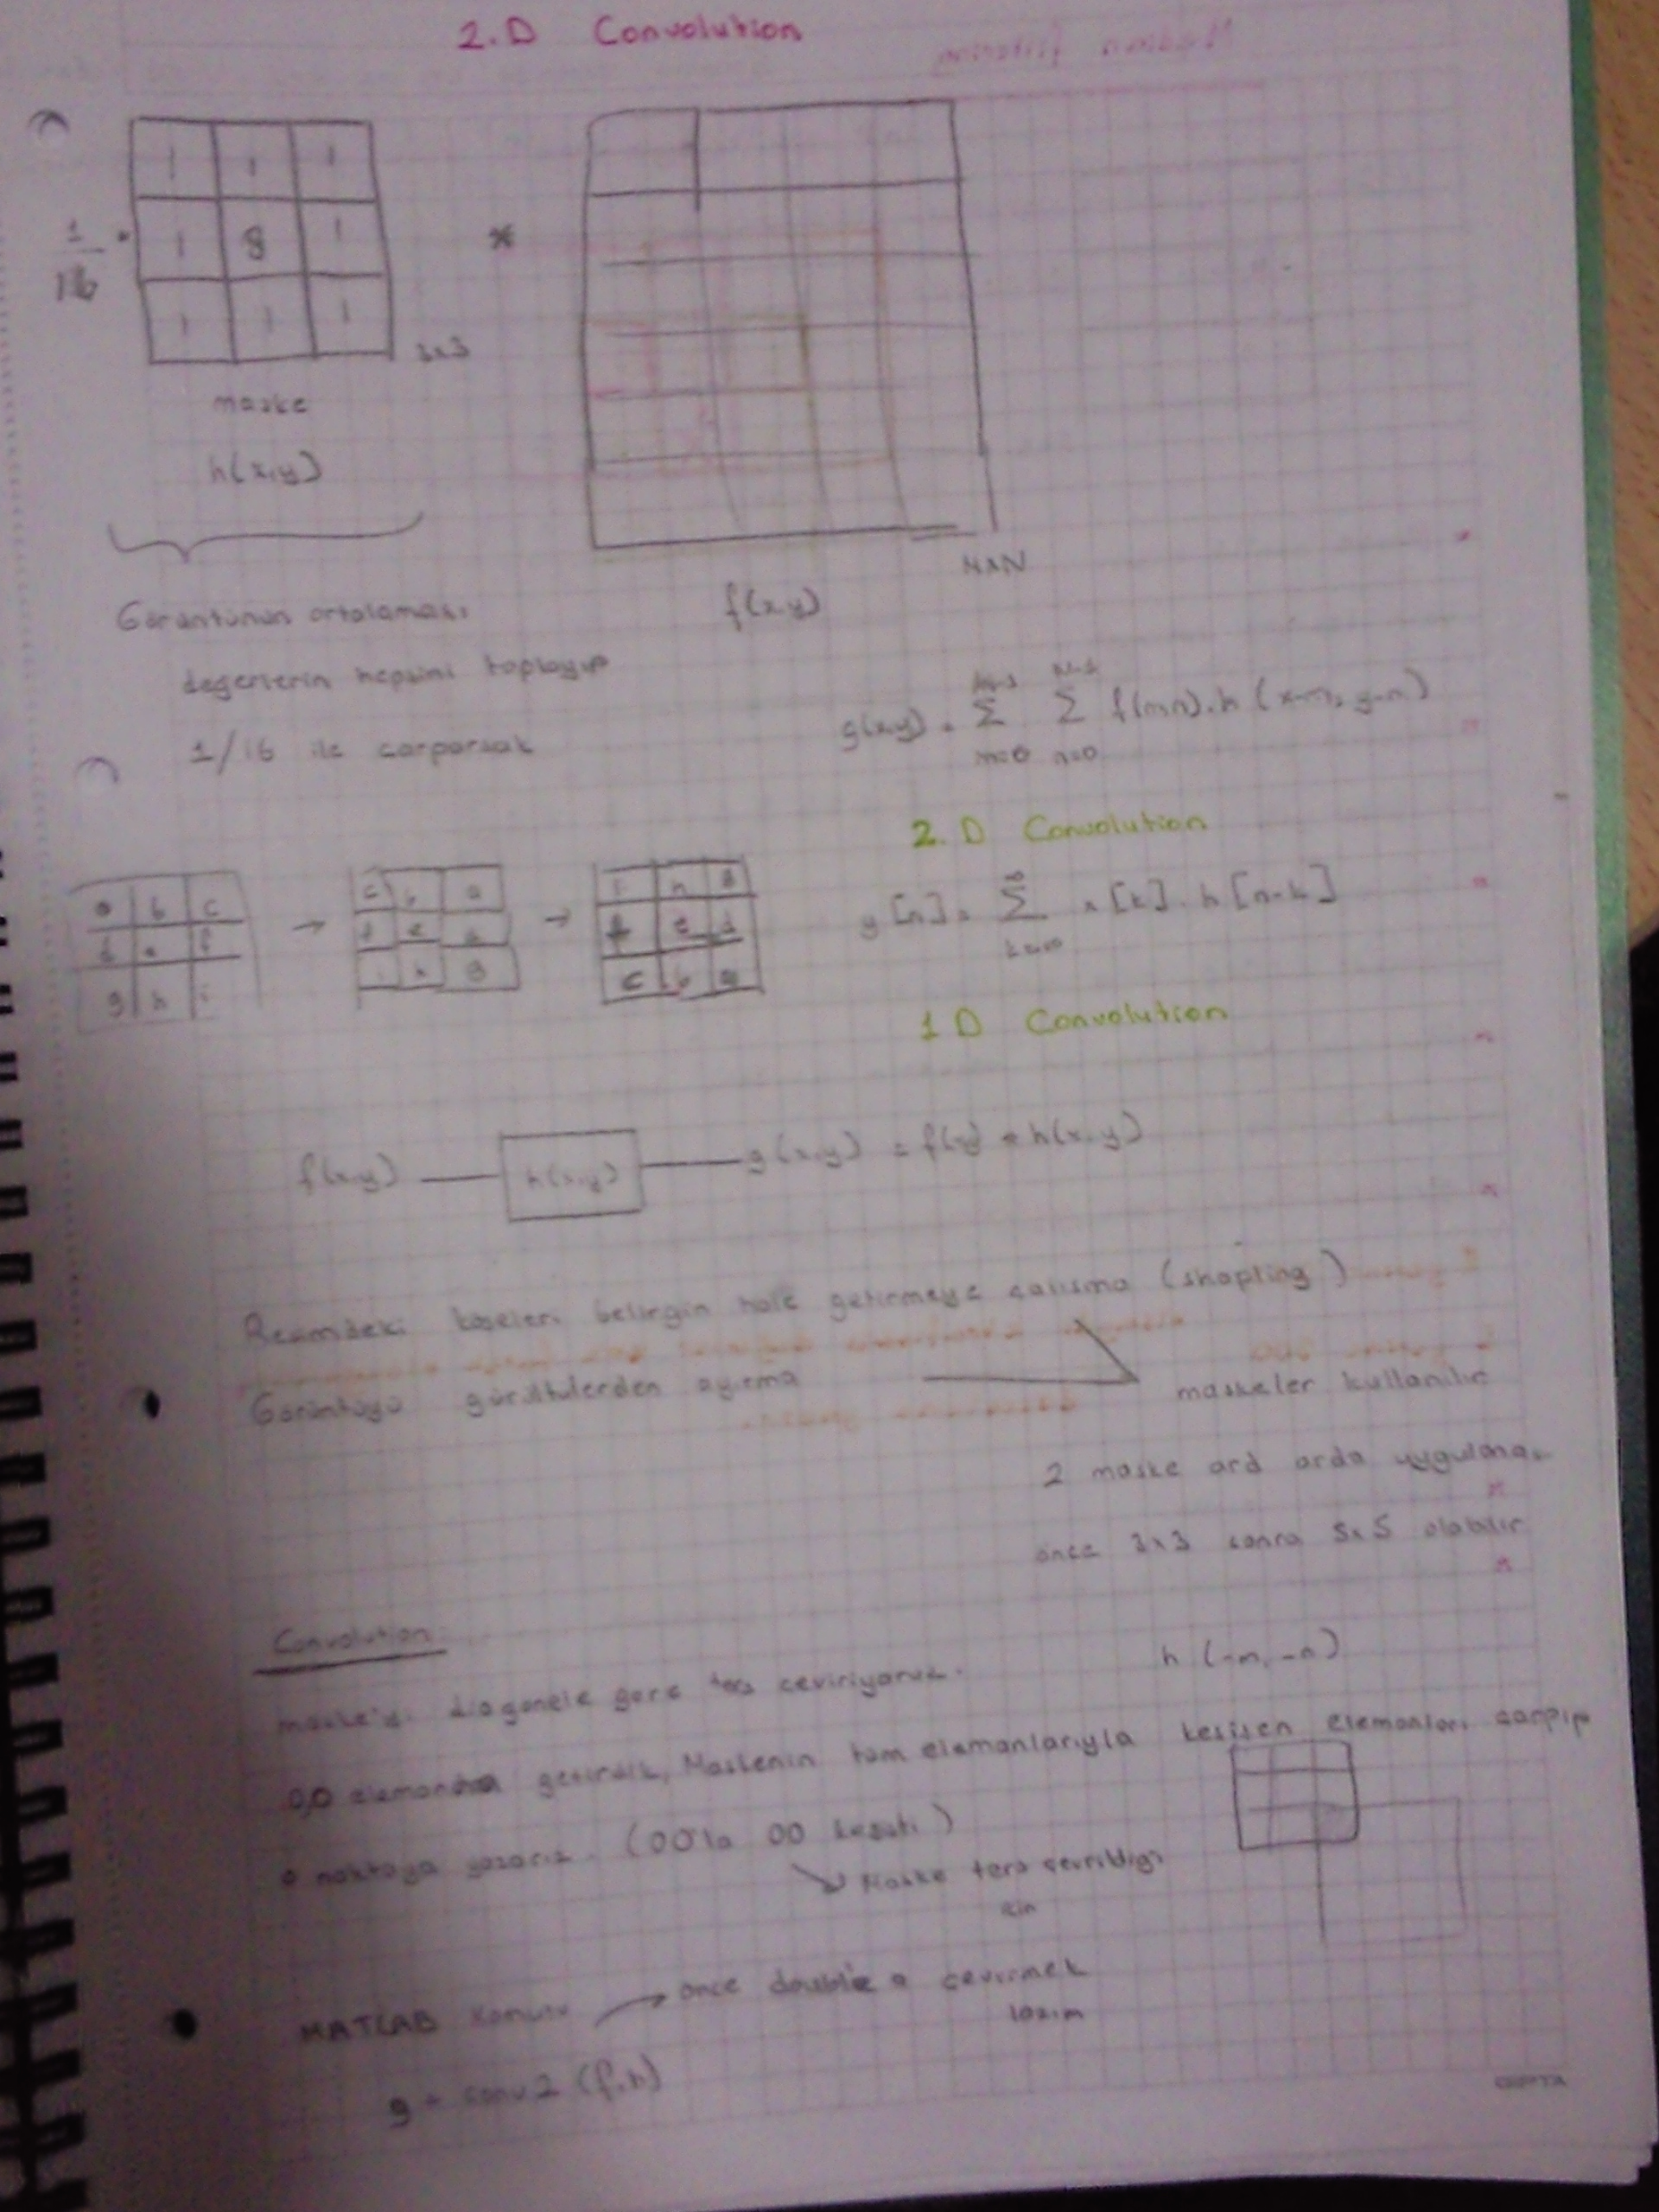 2.D Convolution
1 1 1
1/16 . 1 8 1 *
1 1 1
3x3
maske
h(x,y)
MxN
f(x,y)
Görüntünün ortalaması
değerlerin hepsini toplayıp
1/16 ile çarparsak
g(x,y) = Σ Σ f(m,n).h(x-m, y-n)
m=0 n=0
2.D Convolution
a b c → c b a → i h g
d e f f e d f e d
g h i i h g c b a
y[n] = Σ x[k]. h[n-k]
1 D Convolution
f(x,y) h(x,y) g(x,y) = f(x,y) * h(x,y)
Resimdeki köşeleri belirgin hale getirmeye çalışma (shapting)
Görüntüyü gürültülerden ayırma
maskeler kullanılır
2 maske ard arda uygulanır
önce 3x3 sonra 5x5 olabilir
Convolution:
maske'yi diagonele göre ters çeviriyoruz. h(-m, -n)
0,0 getirdik, Maskenin tüm elemanlarıyla kesişen elemanları çarpıp
o noktaya yazarız. (00'la 00 kesişti)
Maske ters çevrildiği
için
MATLAB Komutu → önce double'a çevirmek
lazım
g = conv2 (f,h)